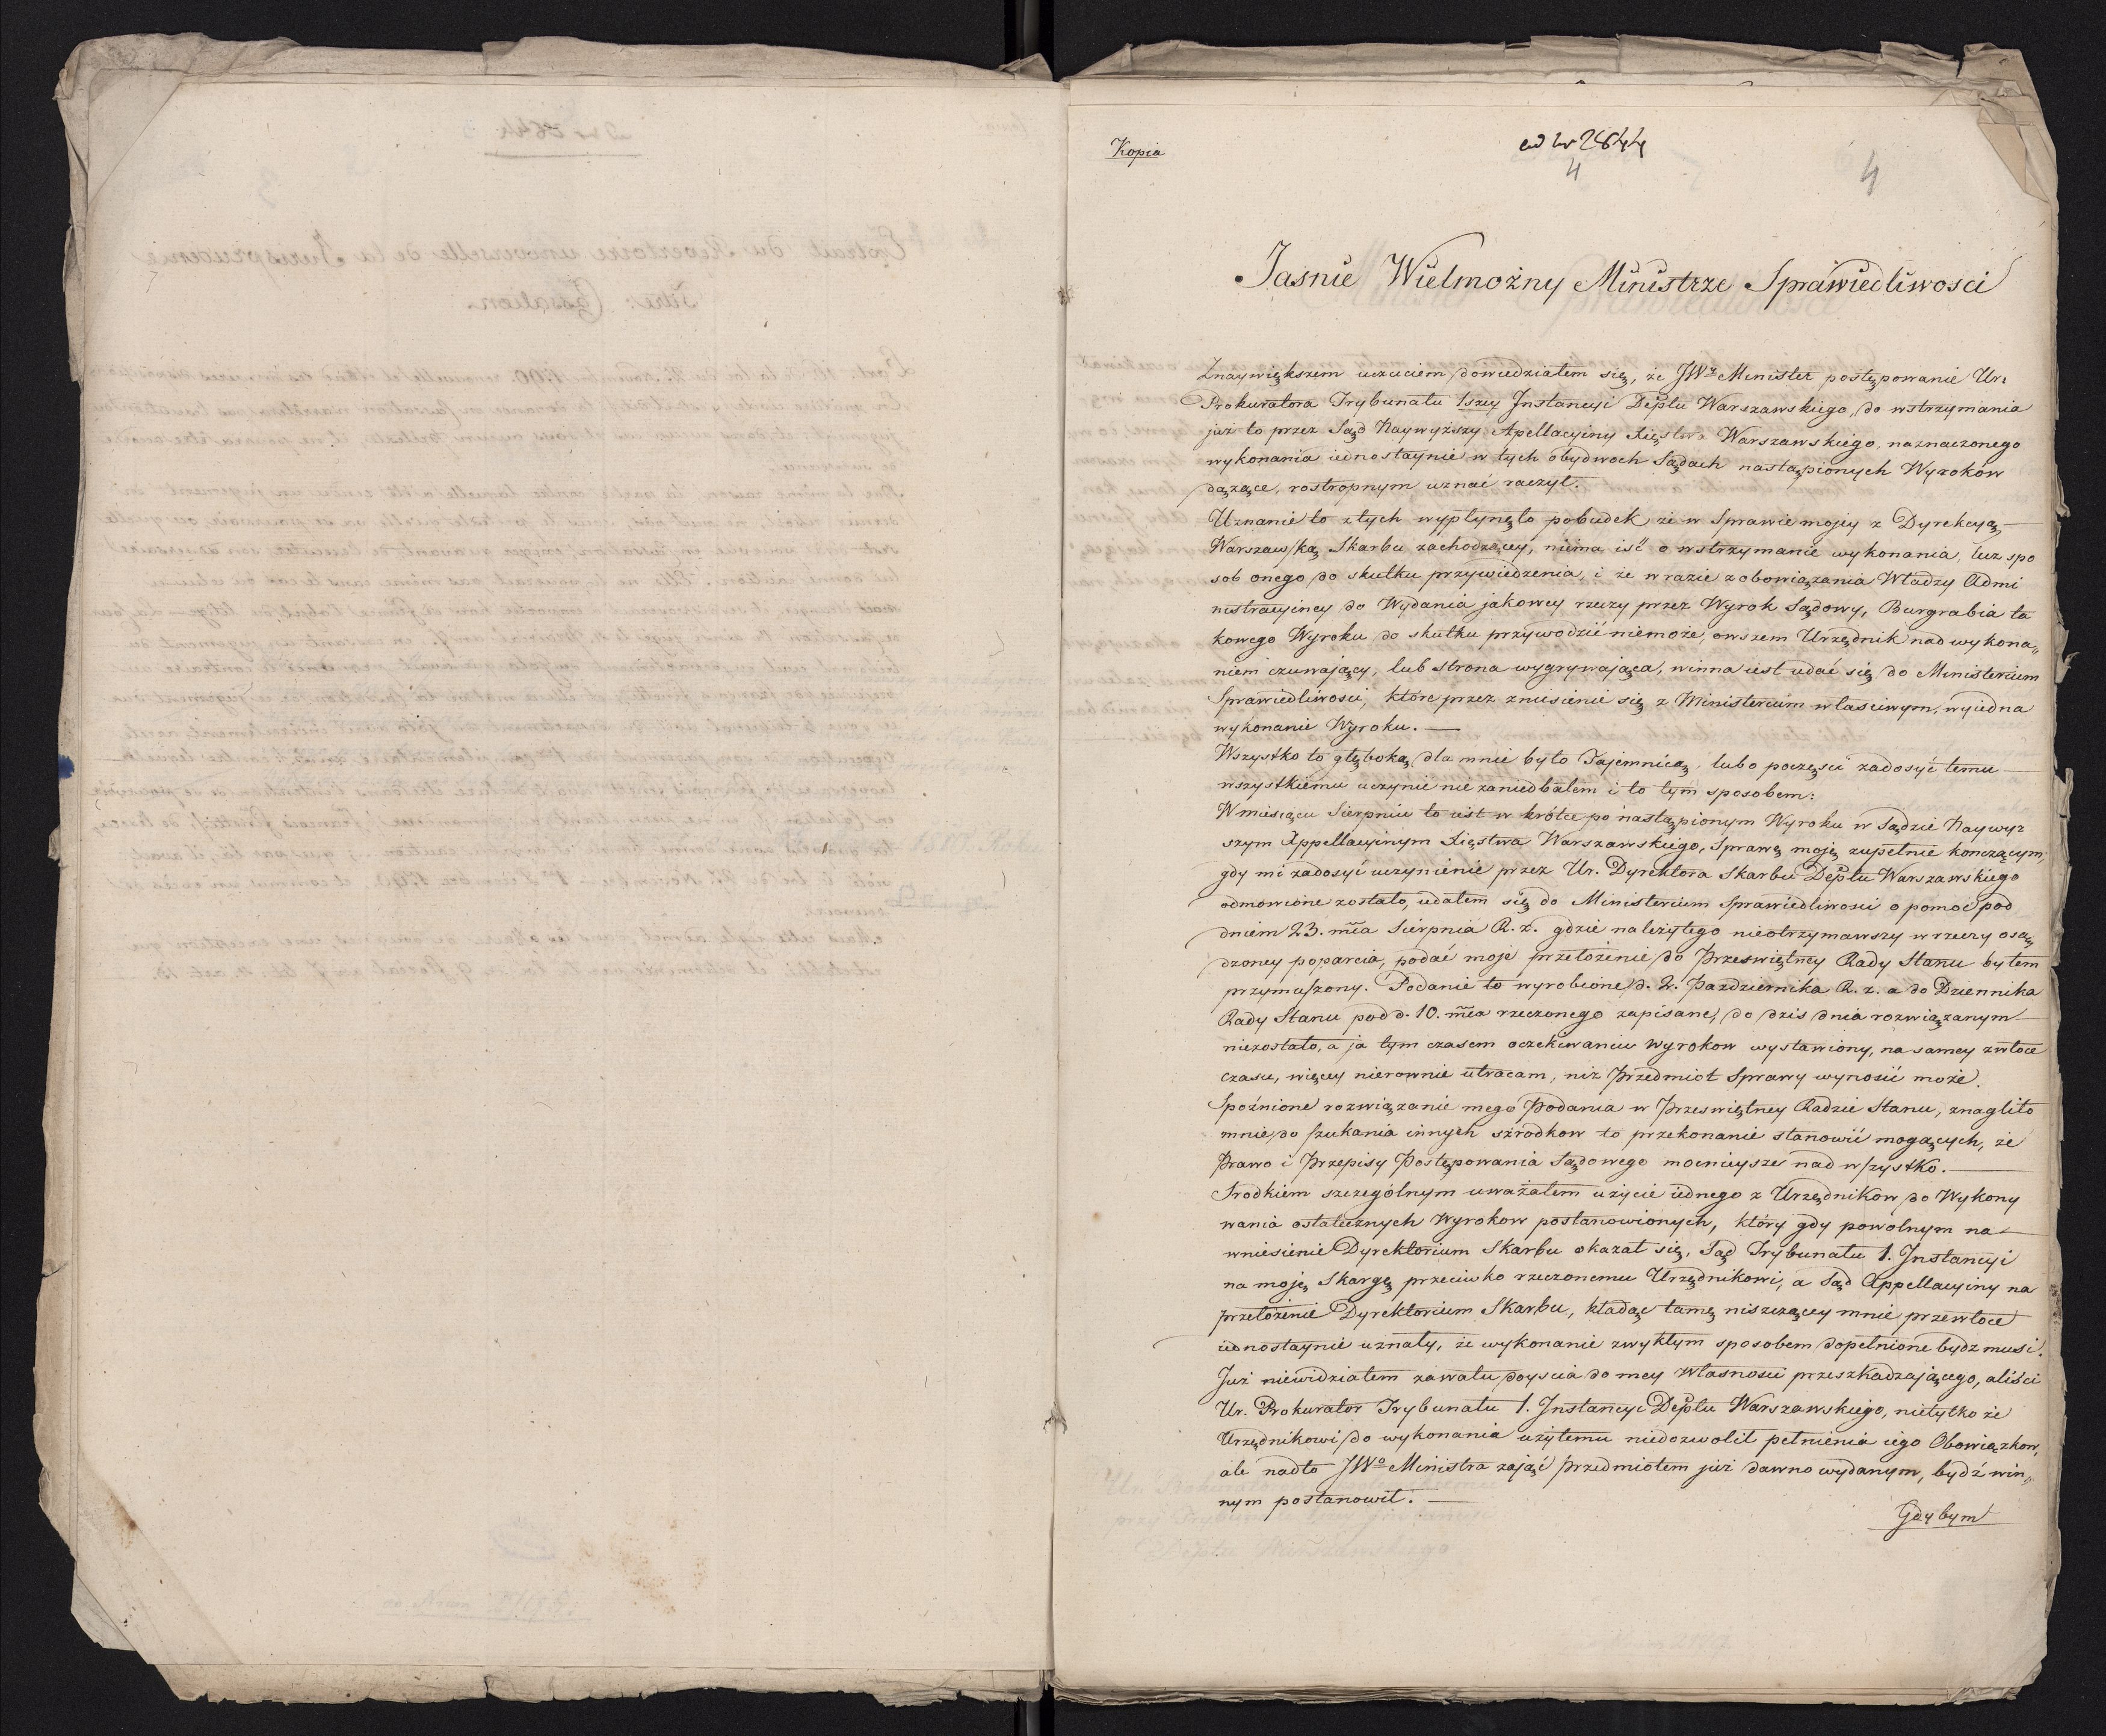 Kopia
ad w 2644
4
4
Jasnie Wielmożny Ministrze Sprawiedliwosci
Znaywiększem uczuciem dowiedziałem się, że JWż Minister postępowanie Ur.
Prokuratora Trybunału 1szey Instancyi Deptu Warszawskiego, do wstrzymania
już to przez Sąd Naywyższy Apellacyiny Xięstwa Warszawskiego, naznaczonego
wykonania iednostaynie w tych obydwoch Sądach nastąpionych Wyroków
dążące, rostropnym uznać raczył.
Uznanie to z tych wypłynęło pobudek że w Sprawie mojey z Dyrekcyą
Warszawską Skarbu zachodzącey, niema iść o wstrzymanie wykonania, lecz spo
sob onego do skutku przywiedzenia, i że w razie zobowiązania Władzy Admi
nistracyiney do Wydania jakowey rzeczy przez Wyrok Sądowy, Burgrabia ta
kowego Wyroku do skutku przywodzić niemoże, owszem Urzędnik nad wykona„
niem czuwający, lub strona wygrywająca, winna iest udać się do Ministerium
Sprawiedliwosci, które przez zniesienie się z Ministerium właściwym, wyiedna
wykonanie Wyroku. —
Wszystko to głęboką dla mnie było Tajemnicą, lubo poczęsci zadosyć temu
wszystkiemu uczynić nie zaniedbałem i to tym sposobem:
W miesiącu Sierpniu to iest w krótce po nastąpionym Wyroku w Sądzie Naywyż
szym Appellacyinym Xięstwa Warszawskiego, Sprawę moję zupełnie konczącym,
gdy mi zadosyć uczynienie przez Ur. Dyrektora Skarbu Deptu Warszawskiego
odmowione zostało, udałem się do Ministerium Sprawiedliwosci o pomoc pod
dniem 23. mca Sierpnia R. z. gdzie należytego nieotrzymawszy w rzeczy osą„
dzoney poparcia, podać moje przełożenie do Przeswiętney Rady Stanu byłem
przymuszony. Podanie to wyrobione d. 2. Pazdziernika R. z. a do Dziennika
Rady Stanu pod d. 10. mca rzeczonego zapisane, do dzis dnia rozwiązanym
niezostało, a ja tym czasem oczekiwaniu Wyrokow wystawiony, na samey zwłoce
czasu, więcey nierownie utracam, niż Przedmiot Sprawy wynosić może.
Spoźnione rozwiązanie mego Podania w Przeswiętney Radzie Stanu, znagliło
mnie do szukania innych szrodkow to przekonanie stanowić mogących, że
Prawo i Przepisy Postępowania Sądowego mocnieysze nad wszystko.
Srodkiem szczególnym uważałem użycie iednego z Urzędnikow do Wykony
wania ostatecznych Wyrokow postanowionych, który gdy powolnym na
wniesienie Dyrektorium Skarbu okazał się, Sąd Trybunału 1. Instancyi
na moję Skargę przeciwko rzeczonemu Urzędnikowi, a Sąd Appellacyiny na
przełożenie Dyrektorium Skarbu, kładąc tamę niszczącey mnie przewłoce
iednostaynie uznały, że wykonanie zwykłym sposobem dopełnione bydz musi.
Już niewidziałem zawału doyscia do mey Własnosci przeszkadzającego, aliści
Ur. Prokurator Trybunału 1. Instancyi Deptu Warszawskiego, nietylko że
Urzędnikowi do wykonania użytemu niedozwolił pełnienia iego Obowiązkow,
ale nadto JWo Ministra zająć Przedmiotem już dawno wydanym, bydź win„
nym postanowił. —
Gdybym